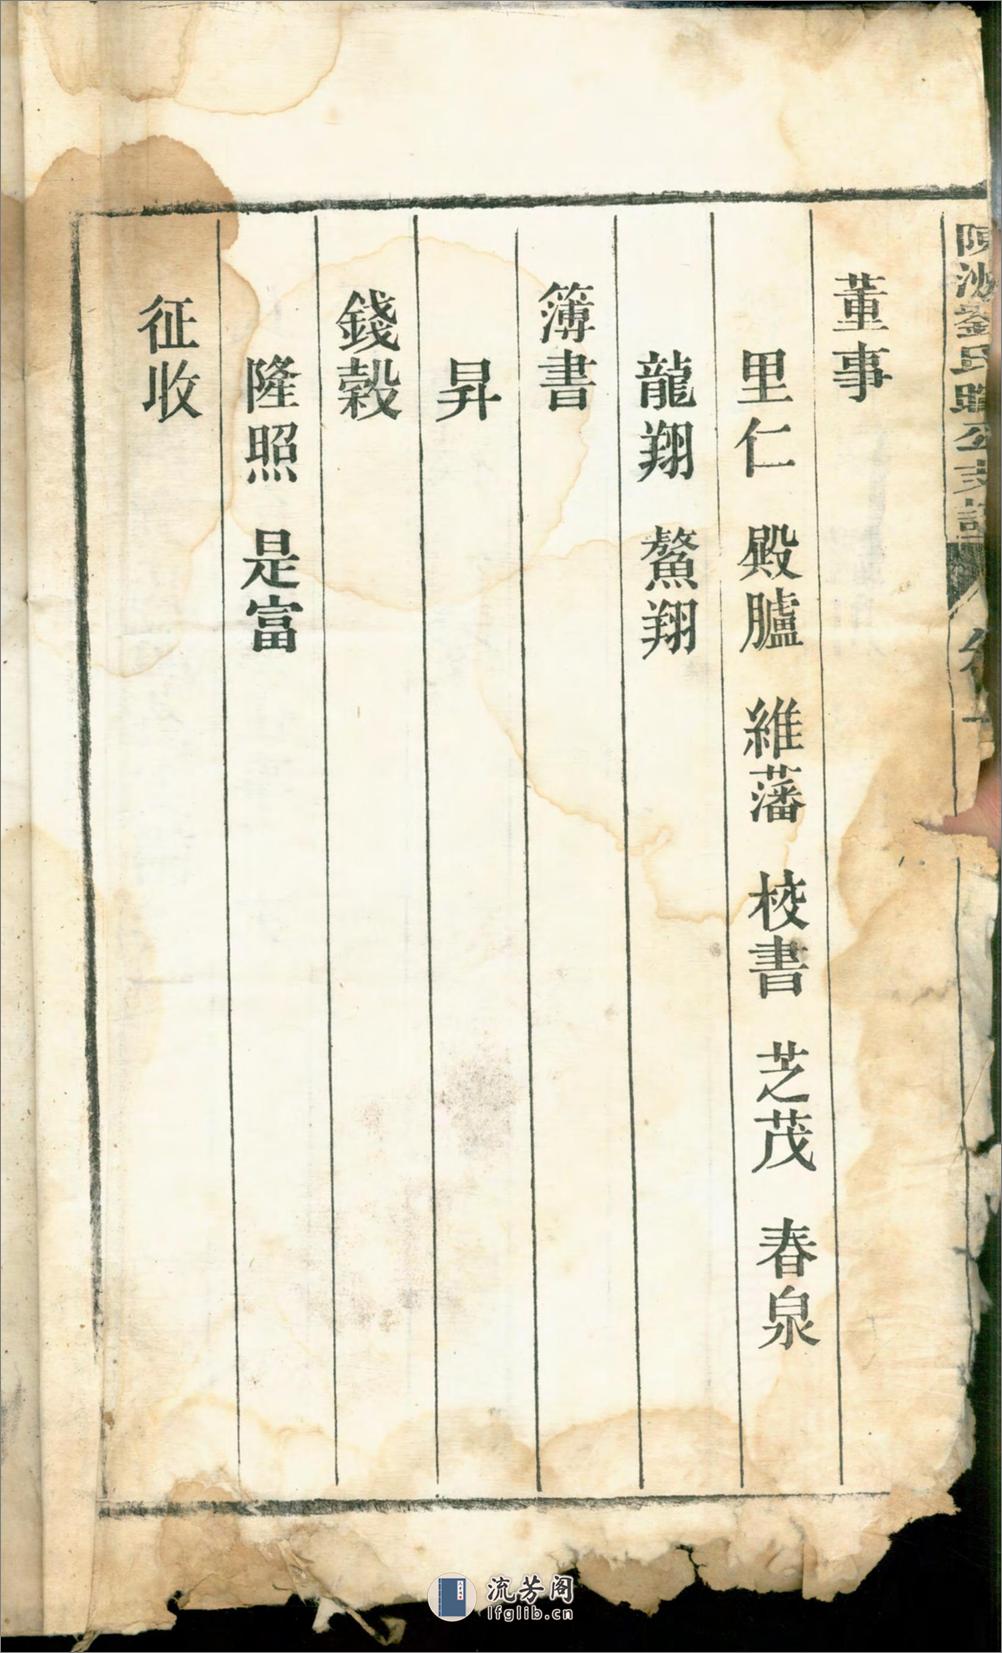 沙劉氏 公支譜
董事
里仁 殿臚 維藩 校書 芝茂 春泉
龍翔 鰲翔
簿書
昇
錢穀
隆照 是富
征收
流芳阁
lfglib.cn